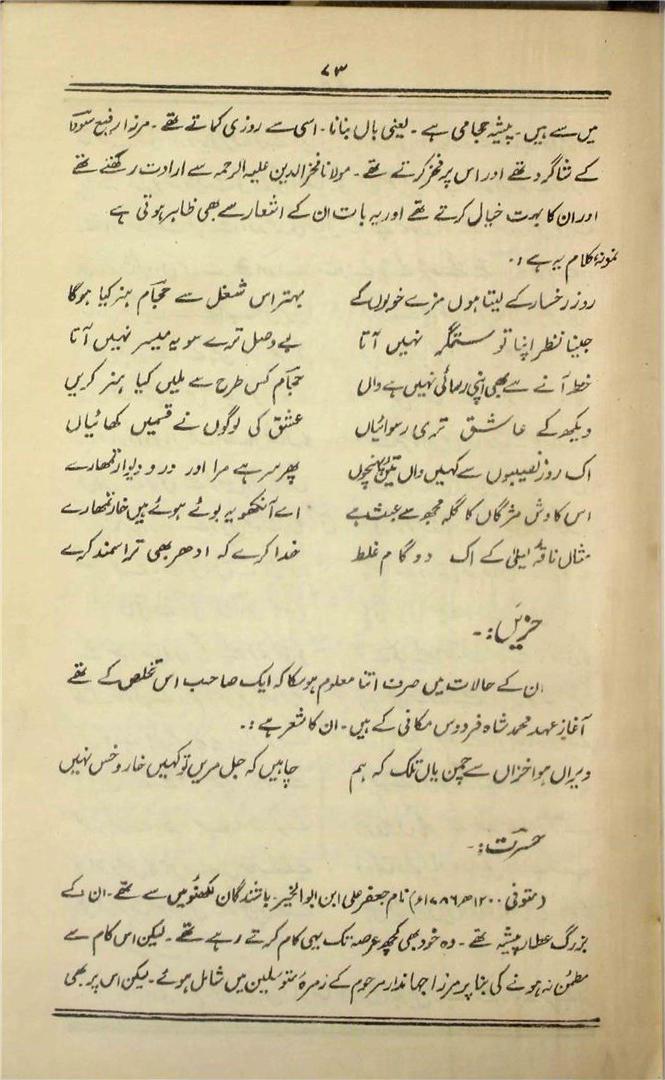 ۷۳
میں سے ہیں۔ پیشہ حجامی ہے۔ یعنی بال بنانا۔ اسی سے روزی کماتے تھے۔ مرزا رفیع سوداؔ
کے شاگرد تھے اور اس پر فخر کرتے تھے۔ مولانا فخر الدین علیہ الرحمہ سے ارادت رکھتے تھے
اور ان کا بہت خیال کرتے تھے اور یہ بات ان کے اشعار سے بھی ظاہر ہوتی ہے
نمونۂ کلام یہ ہے:۔
روز رخسار کے لیتا ہوں مزے خوباں کے بہتر اس شغل سے حجامؔ ہنر کیا ہوگا
جینا نظر اپنا تو ستمگر نہیں آتا بے وصل ترے سو یہ میسر نہیں آتا
خط آنے سے بھی اپنی رسائی نہیں ہے واں حجامؔ کس طرح سے ملیں کیا ہنر کریں
دیکھ کے عاشق تری رسوائیاں عشق کی لوگوں نے قسمیں کھائیاں
اک روز نصیبوں سے کہیں واں تئیں پہنچوں پھر سر ہے مرا اور در و دیوار تمھارے
اس کاوش مژگاں کا گلہ مجھ سے عبث ہے اے آنکھو یہ بوئے ہوئے ہیں خار تمھارے
مثال ناقۂ لیلیٰ کے اک دو گام غلط خدا کرے کہ ادھر بھی ترا سمند کرے
حزیںؔ:۔
ان کے حالات میں صرف اتنا معلوم ہو سکا کہ ایک صاحب اس تخلص کے تھے
آغاز عہد محمد شاہ فردوس مکانی کے ہیں۔ ان کا شعر ہے:۔
ویراں ہوا خزاں سے چمن یاں تلک کہ ہم چاہیں کہ جل مریں تو کہیں خار و خس نہیں
حسرتؔ:۔
(متوفی ۱۲۰۰ھ ۱۷۸۶ء) نام جعفر علی ابن ابوالخیر۔ باشندگان لکھنؤ میں سے تھے۔ ان کے
بزرگ عطار پیشہ تھے۔ وہ خود بھی کچھ عرصہ تک یہی کام کرتے رہے تھے۔ لیکن اس کام سے
مطمئن نہ ہونے کی بنا پر مرزا جہاندار مرحوم کے زمرۂ متوسلین میں شامل ہوئے۔ لیکن اس پر بھی